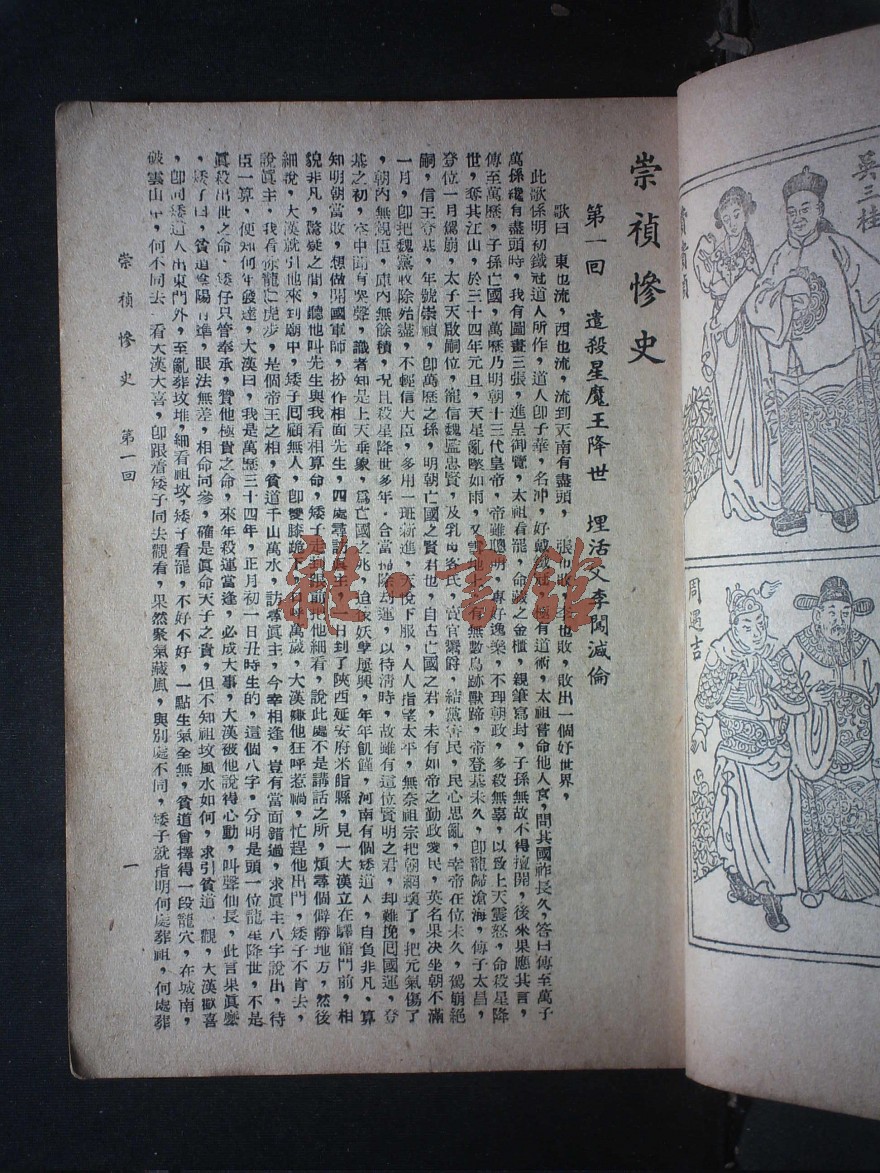 吳三桂
周遇吉
崇禎慘史
第一回 遣殺星魔王降世 埋活父李闖滅倫
歌曰 東也流，西也流，流到天南有盡頭， 張也敗，李也敗，敗出一個好世界，
此歌係明初鐵冠道人所作，道人卽子華，名冲，好戴鐵冠，極有道術，太祖嘗命他人宮，問其國祚長久，答曰傳至萬子
萬孫纔有盡頭時，我有圖畫三張，進呈御覽，太祖看罷，命藏之金櫃，親筆寫封，子孫無故不得擅開，後來果應其言，
傳至萬歷，子孫亡國，萬歷乃明朝十三代皇帝，帝雖聰明，專好逸樂，不理朝政，多殺無辜，以致上天震怒，命殺星降
世，奪其江山，於三十四年元旦，天星亂墜如雨，又雪地上有無數鳥跡獸蹄，帝登基未久，卽龍歸滄海，傳子太昌，
登位一月駕崩，太子天啟嗣位，寵信魏監忠賢，及乳母客氏，賣官鬻爵，結黨害民，民心思亂，幸帝在位未久，駕崩絕
嗣，信王登基，年號崇禎，卽萬歷之孫，明朝亡國之賢君也，自古亡國之君，未有如帝之勤政愛民，英名果决坐朝不滿
一月，卽把魏黨收除始盡，不輕信大臣，多用一班新進，天悅下服，人人指望太平，無奈祖宗把朝綱壞了，把元氣傷了
，朝內無親臣，庫內無餘積，况且殺星降世多年，合當掃除刦運，以待清時，故雖有這位賢明之君，却難挽囘國運，登
基之初，空中聞有哭聲，識者知是上天垂象，爲亡國之兆，迫後妖孽屢興，年年飢饉，河南有個矮道人，自負非凡，算
知明朝當敗，想做開國軍師，扮作相面先生，四處尋訪眞主，一日到了陝西延安府米脂縣，見一大漢立在驛館門前，相
貌非凡，驚疑之間，聽他叫先生與我看相算命，矮子走到跟前把他細看，說此處不是講話之所，煩尋個僻靜地方，然後
細說，大漢就引他來到廟中，矮子囘顧無人，卽雙膝跪下，口呼萬歲，大漢嫌他狂呼惹禍，忙趕他出門，矮子不肯去，
說眞主，我看你龍行虎步，是個帝王之相，貧道千山萬水，訪尋眞主，今幸相逢，豈有當面錯過，求眞主八字說出，待
臣一算，便知何年發達，大漢曰，我是萬歷三十四年，正月初一日丑時生的，這個八字，分明是頭一位龍星降世，不是
眞殺出世之命，矮仔只管奉承，贊他極貴之命，來年殺運當逢，必成大事，大漢被他說得心動，叫聲仙長，此言果眞麽
，矮子曰，貧道陰陽有準，眼法無差，相命同參，確是眞命天子之貴，但不知祖坟風水如何，求引貧道一觀，大漢歡喜
，卽同矮道人出東門外，至亂葬坟堆，細看祖坟，矮子看罷，不好不好，一點生氣全無，貧道曾擇得一段龍穴，在城南，
破雲山中，何不同去一看大漢大喜，卽跟着矮子同去觀看，果然聚氣藏風，與別處不同，矮子就指明何處葬祖，何處葬
崇禎慘史 第一回 一
雜·書館